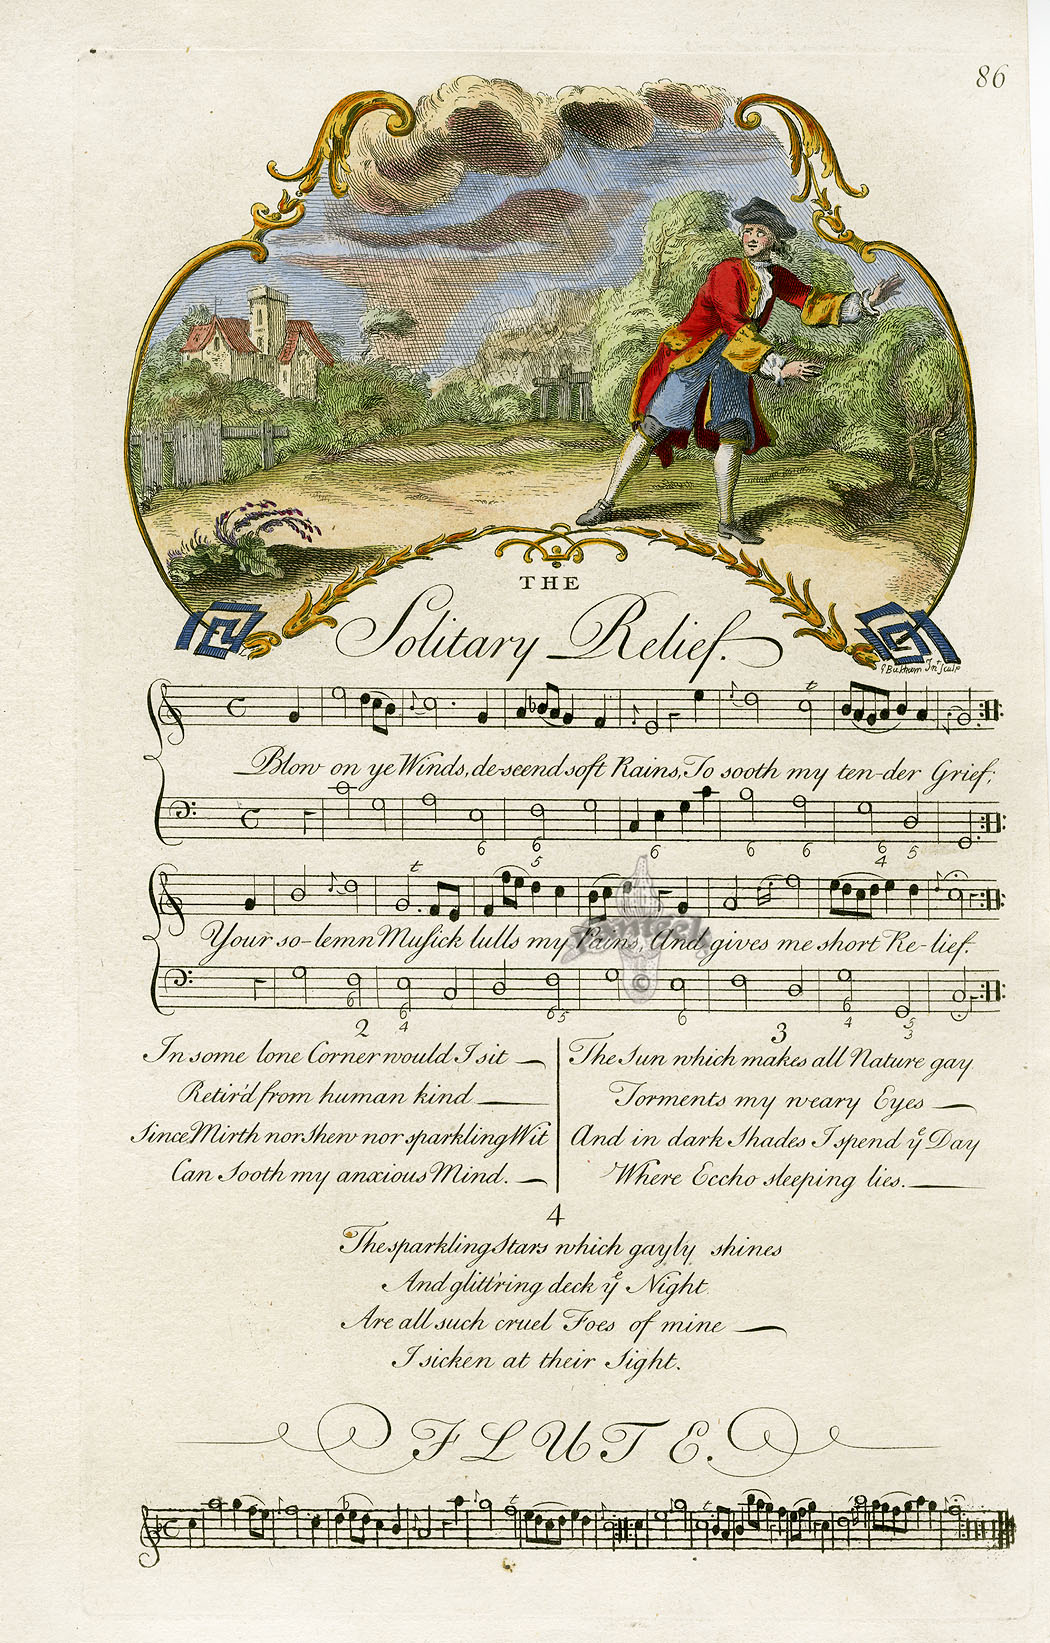 86
THE
Solitary Relief.
G Bickham Inv Sculp
Blow on ye Winds, de-scend soft Rains, To sooth my ten-der Grief;
6 6 5 6 6 6 6 4 5
t
Your so-lemn Musick lulls my Pains, And gives me short Re-lief.
6 6 4 6 5 6 6 4 5 3
2
In some lone Corner would I sit
Retir'd from human kind
Since Mirth nor Shew nor sparkling Wit
Can Sooth my anxious Mind.
3
The Sun which makes all Nature gay
Torments my weary Eyes
And in dark Shades I spend ye Day
Where Eccho sleeping lies.
4
The sparkling Stars which gayly shines
And glitt'ring deck ye Night
Are all such cruel Foes of mine
I sicken at their Sight.
FLUTE.